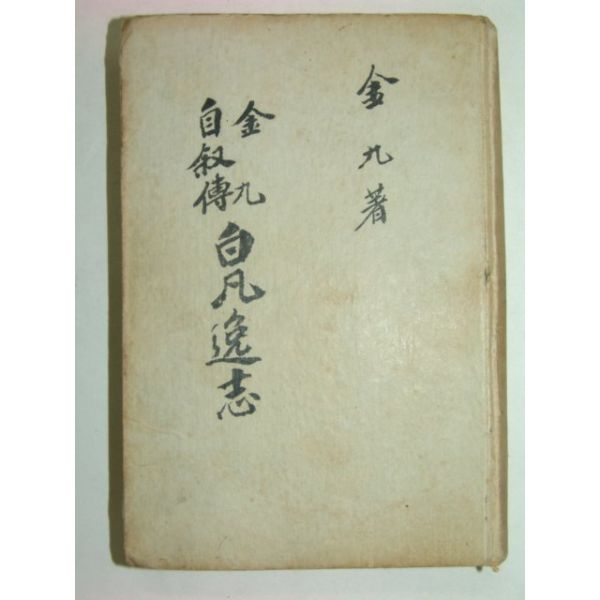 金九著
金九
自叙傳
白凡逸志